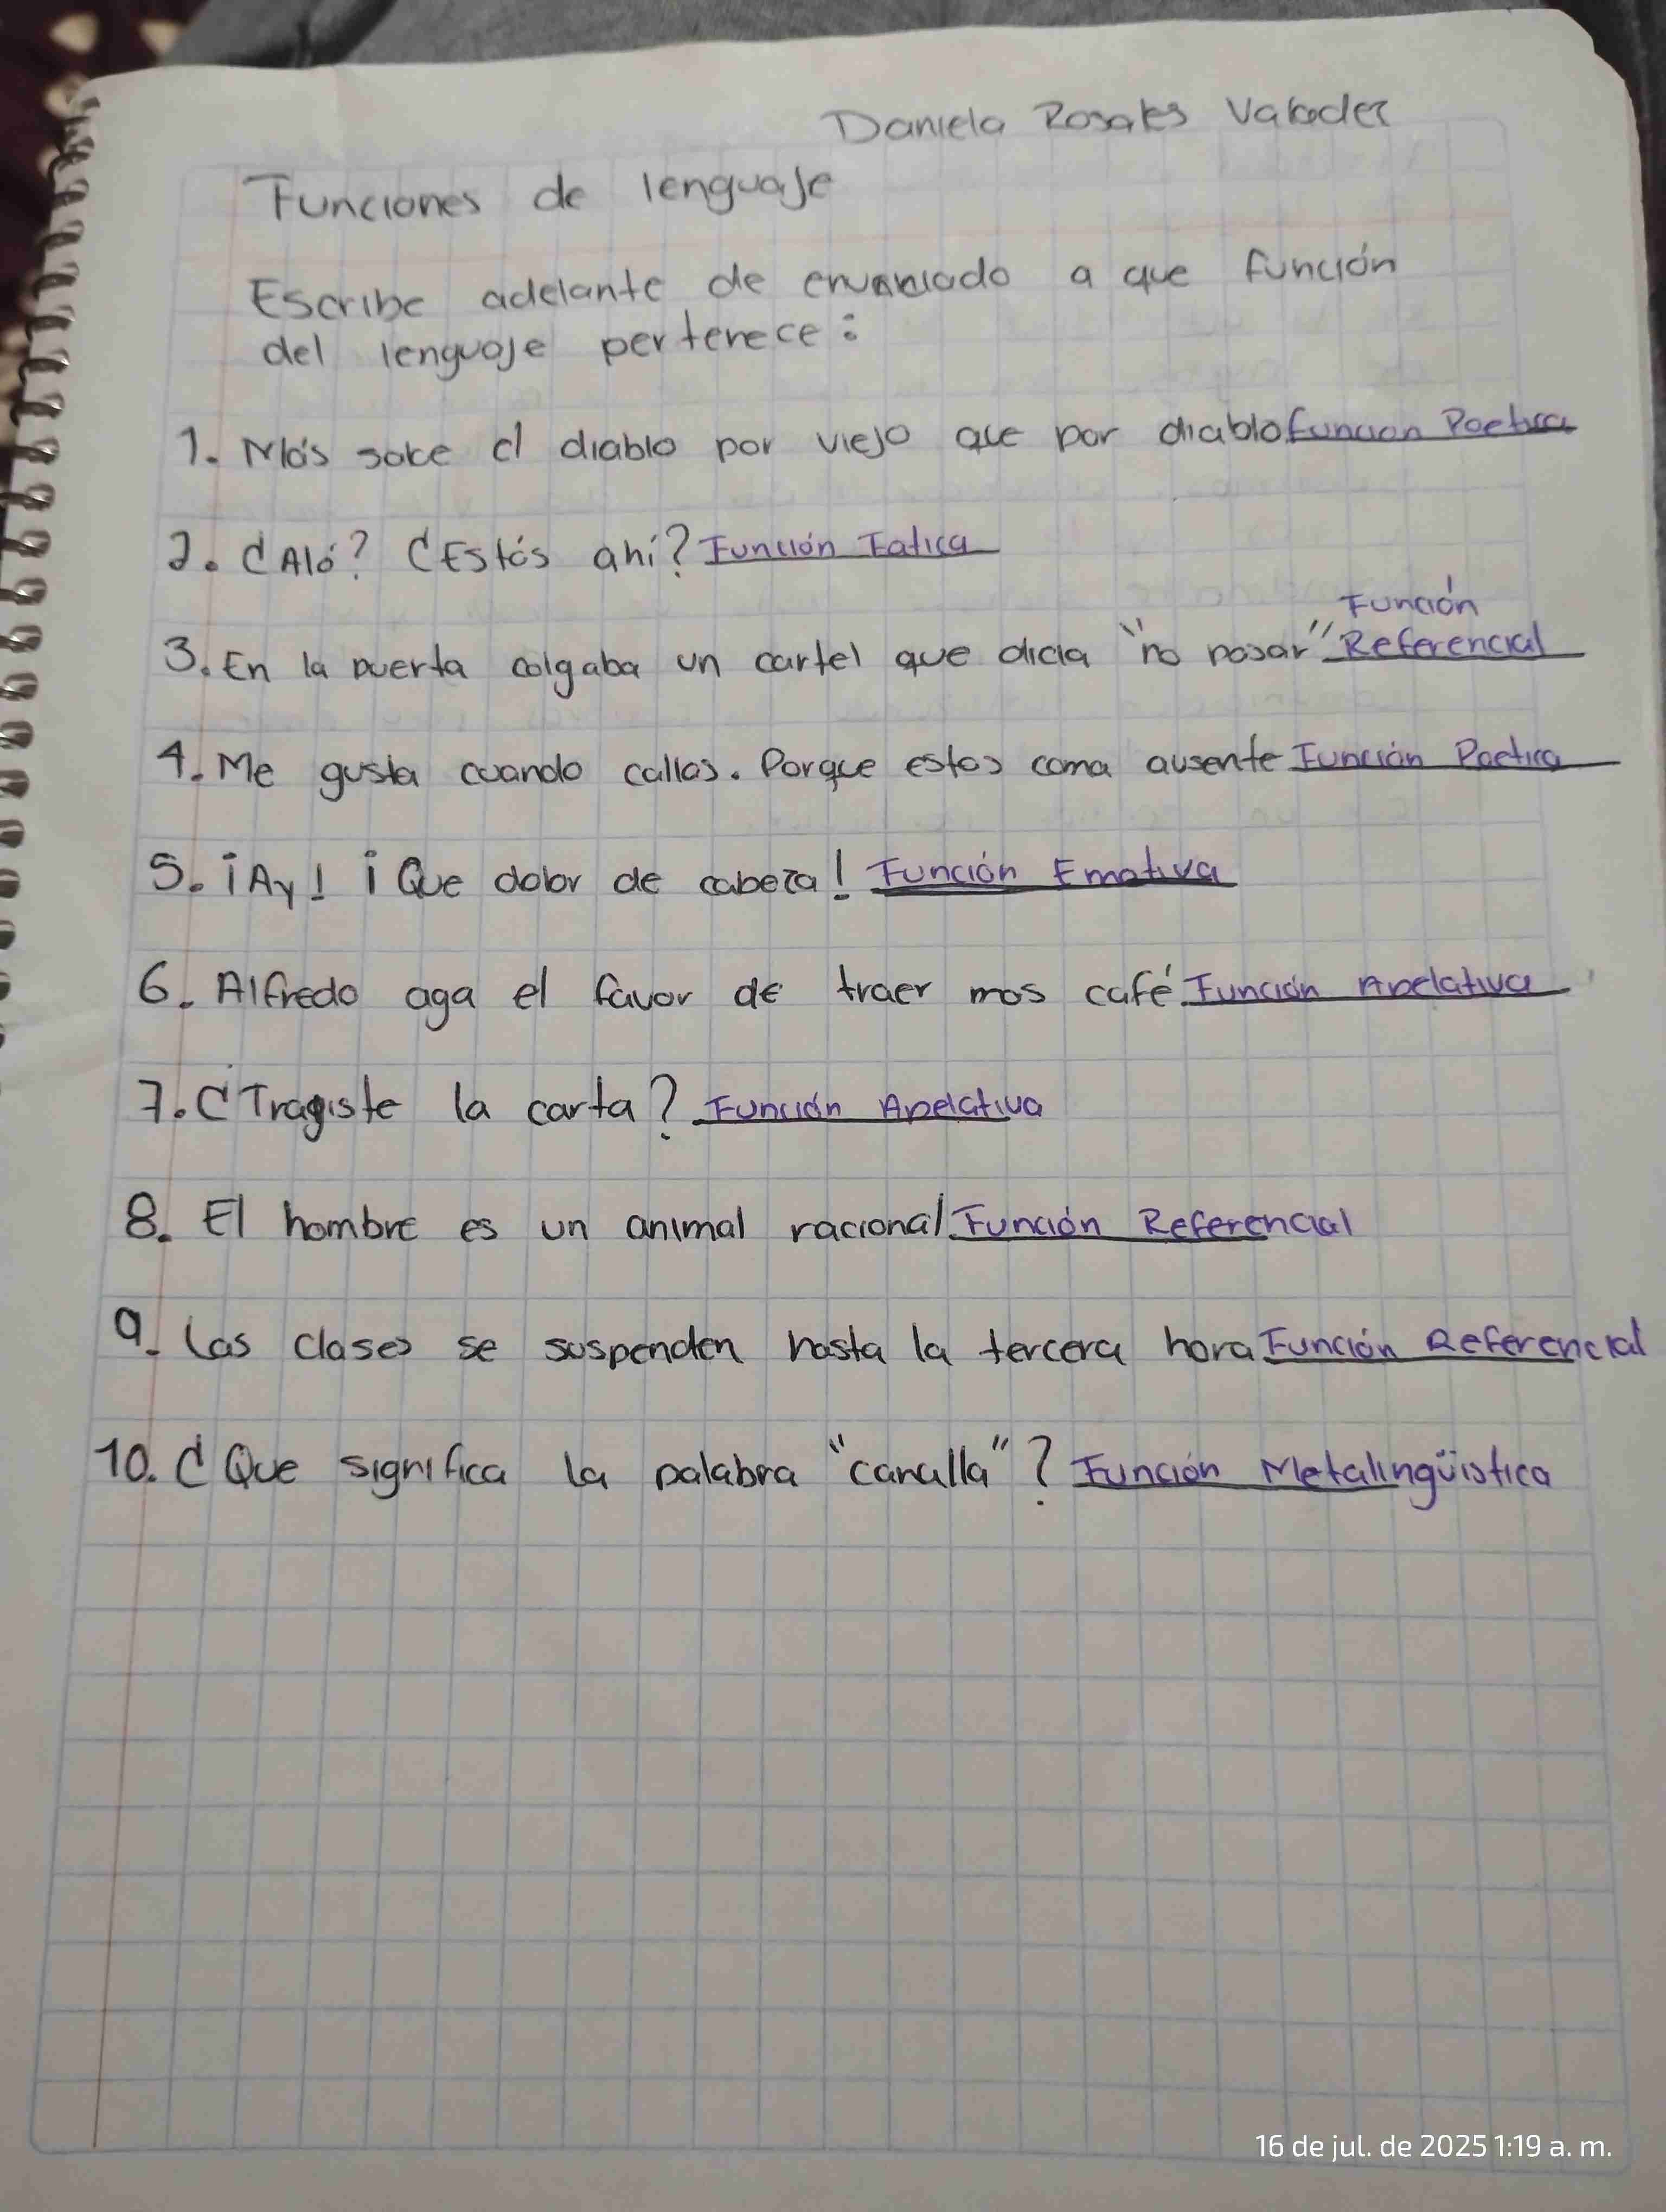 Daniela Rosales
Funciones de lenguaje
Escribe adelante de enunciado a que función
del lenguaje pertenece:
1. Más sabe el diablo por viejo que por diablo función Poetica
2. ¿Aló? ¿Estás ahí? Función Fatica
Función
3. En la puerta colgaba un cartel que dicia "no pasar" Referencial
4. Me gusta cuando callas. Porque estas coma ausente Función Poetica
5. ¡Ay! ¡Que dolor de cabeza! Función Emotiva
6. Alfredo aga el favor de traer mas café Función Apelativa
7. ¿Tragiste la carta? Función Apelativa
8. El hombre es un animal racional. Función Referencial
9. Las clases se suspenden hasta la tercera hora Función Referencial
10. ¿Que significa la palabra "canalla"? Función Metalingüistica
16 de jul. de 2025 1:19 a. m.